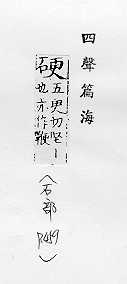 四聲篇海
硬
五更切堅丨
也亦作鞕
（石部 P459）